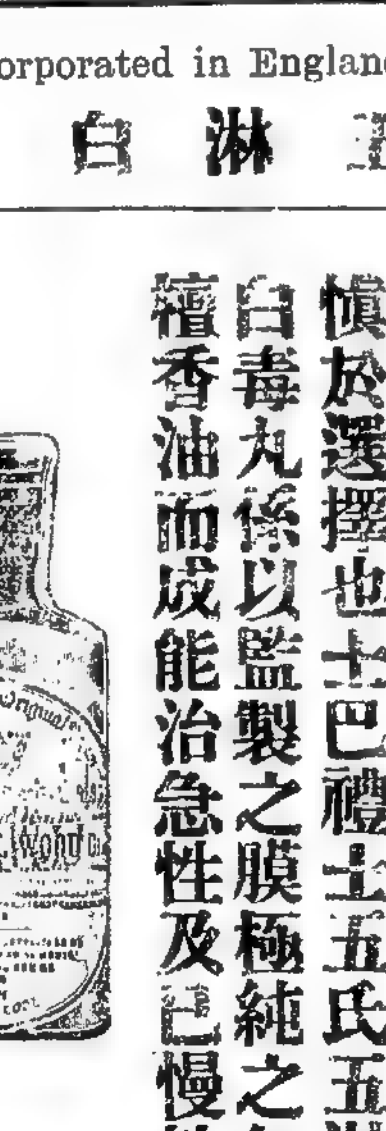 orporated in England
白 淋 五
慎於選擇也士巴禮士五氏五
白毒丸係以監製之膜極純之
檀香油而成能治急性及已慢
Original